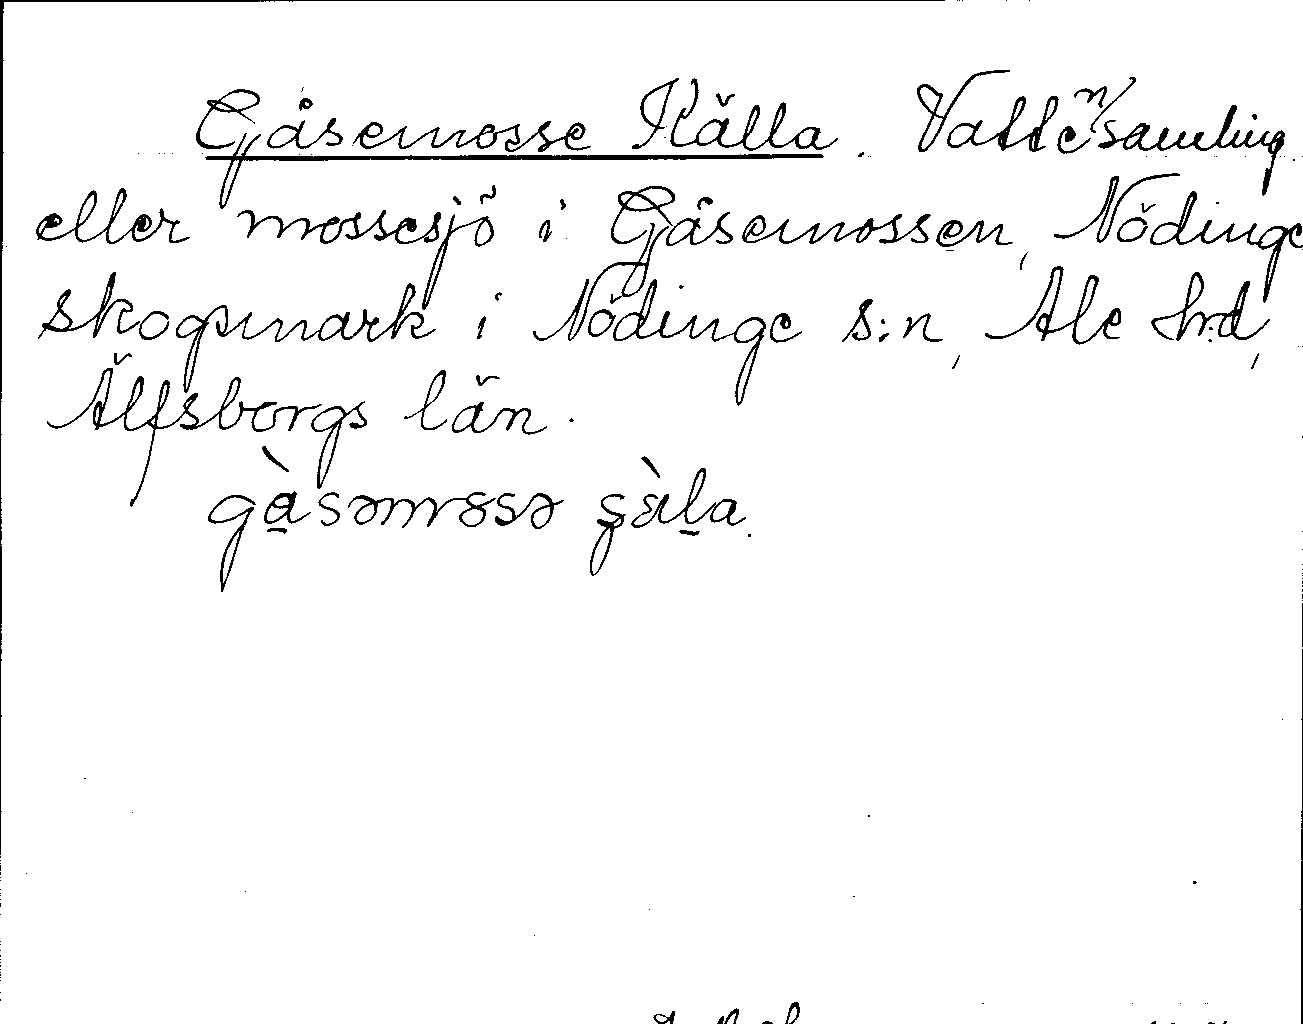 Gåsemosse Källa. Vattensamling
eller mossesjö i Gåsemossen, Nödinge
skogsmark i Nödinge s:n, Ale h:d,
Älfsborgs län.
gàsəmɷsə